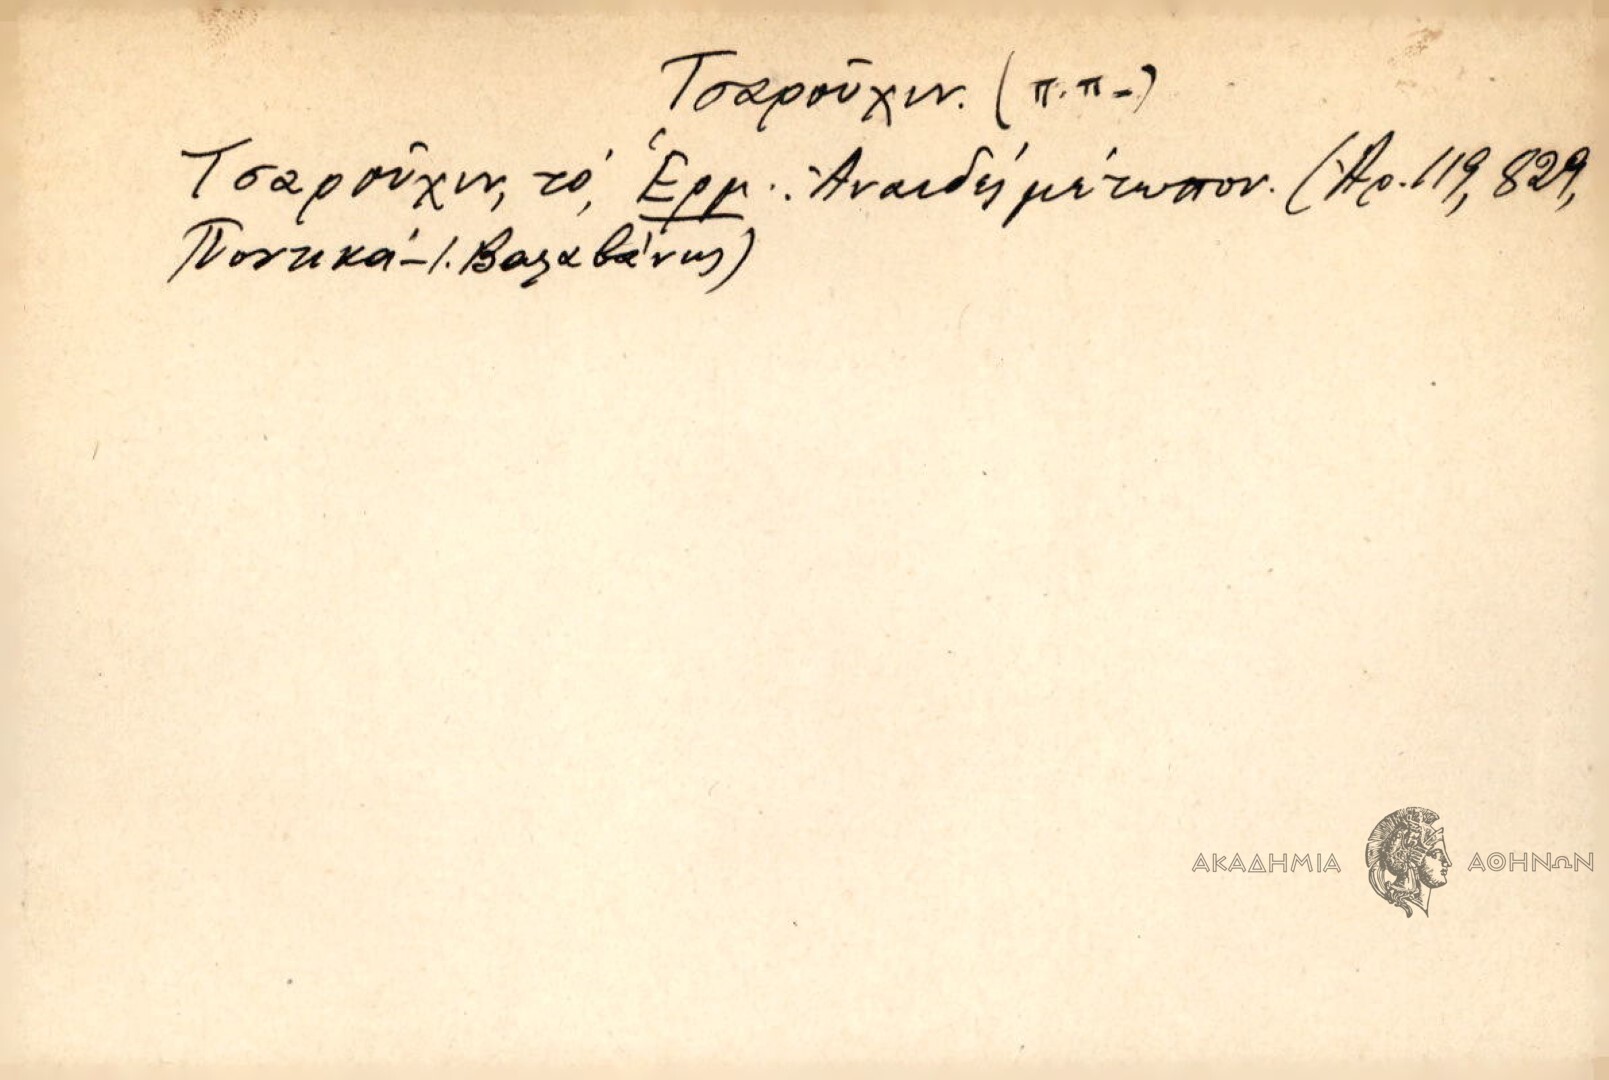 Τσαροῦχιν. (π.π.)
Τσαροῦχιν, τό, Ἑρμ.: Ἀναιδές μέτωπον. (Ἀρ. 119, 829,
Ποντικά - Ι. Βαλαβάνης)
ΑΚΑΔΗΜΙΑ ΑΘΗΝΩΝ